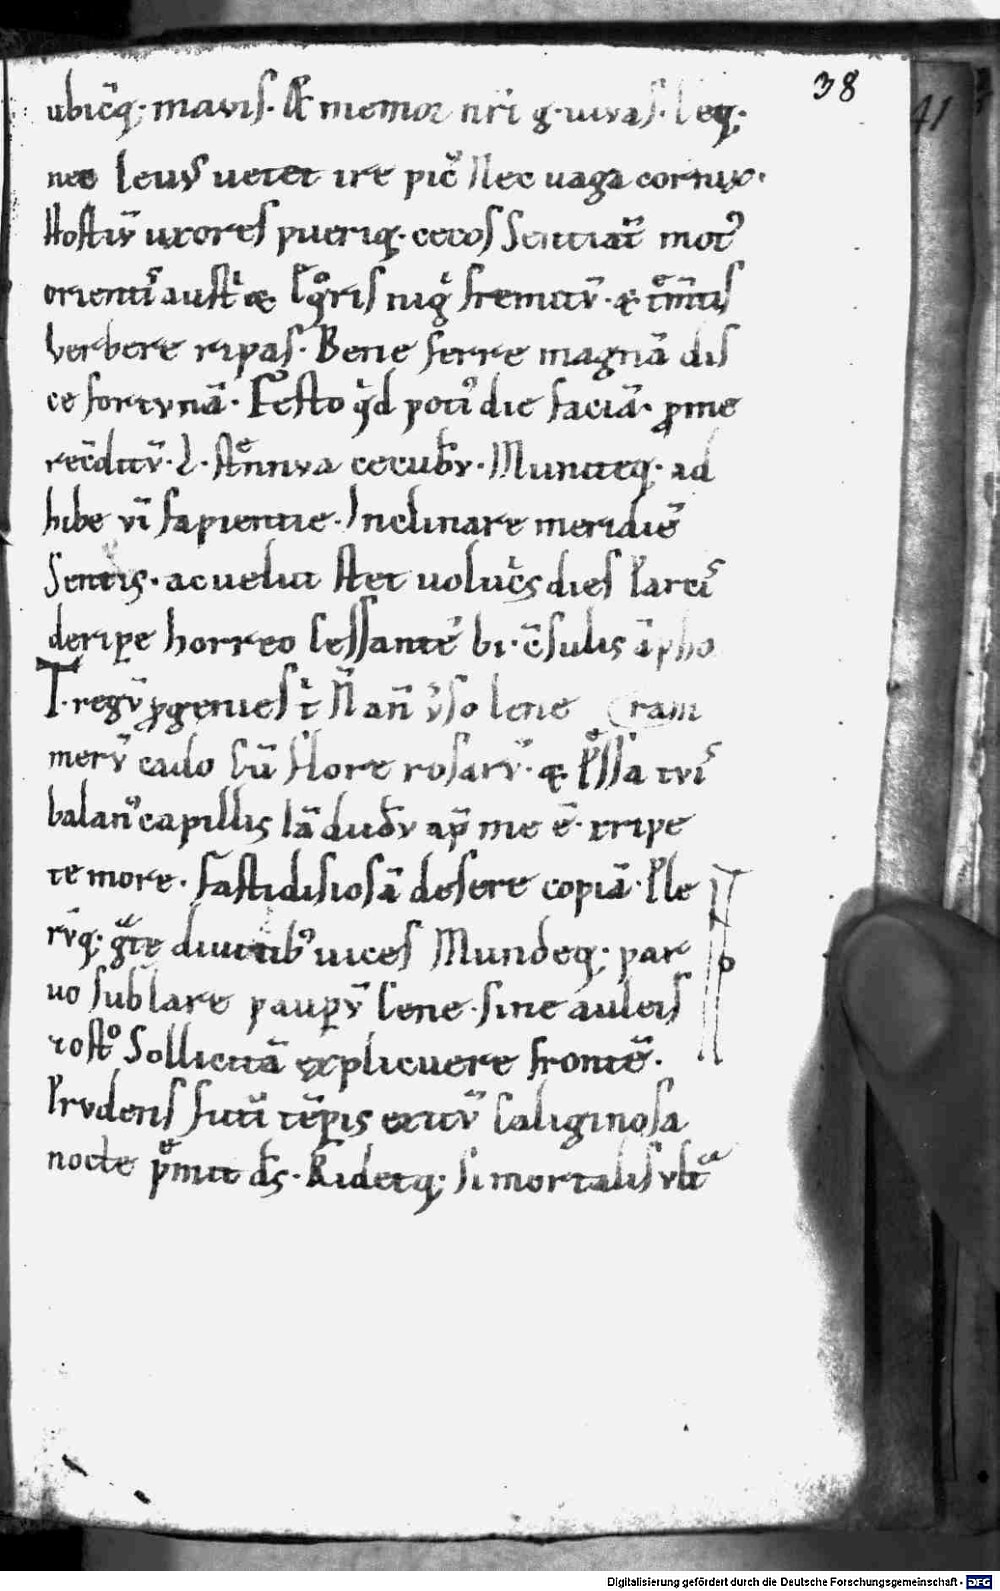 38
41
ubicq; mavis. Et memor nr̄i g. uivas. Teq;
nec levus vetet ire pic̄ Nec vaga cornix.
Hostiū uxores pueriq. cecos Sentiāt motꝰ
orientis austri & equoris nigri fremitū. & trementis
verbere ripas. Bene ferre magnā dis
ce fortunā. Festo qd potiꝰ die faciā. ꝓme
recōditū. L. strennua cecubū. Muniteq. ad
hibe vī sapientie. Inclinare meridiē
Sentis. ac velut stet volucris dies Parcis
deripere horreo Cessantē bi. c̄sulis āpho
T. regū ꝓgenies t Ñ añ v̓so lene ram
merū cado Cū flore rosarū. &. Pressa tuis
balanꝰ capillis Iā dudū apꝫ me ē. eripe
te more. Fastidisiosā desere copiā. Ple
rūq; grate divitibꝰ vices Mundeq; par
vo sub lare pauꝑū Cene. sine auleis
⁊ ostro Sollicitā explicuere frontē.
Prudens futuri tēporis exitū Caliginosa
nocte premit ds̄. Ridetq; si mortalis ultra
Digitalisierung gefördert durch die Deutsche Forschungsgemeinschaft - DFG